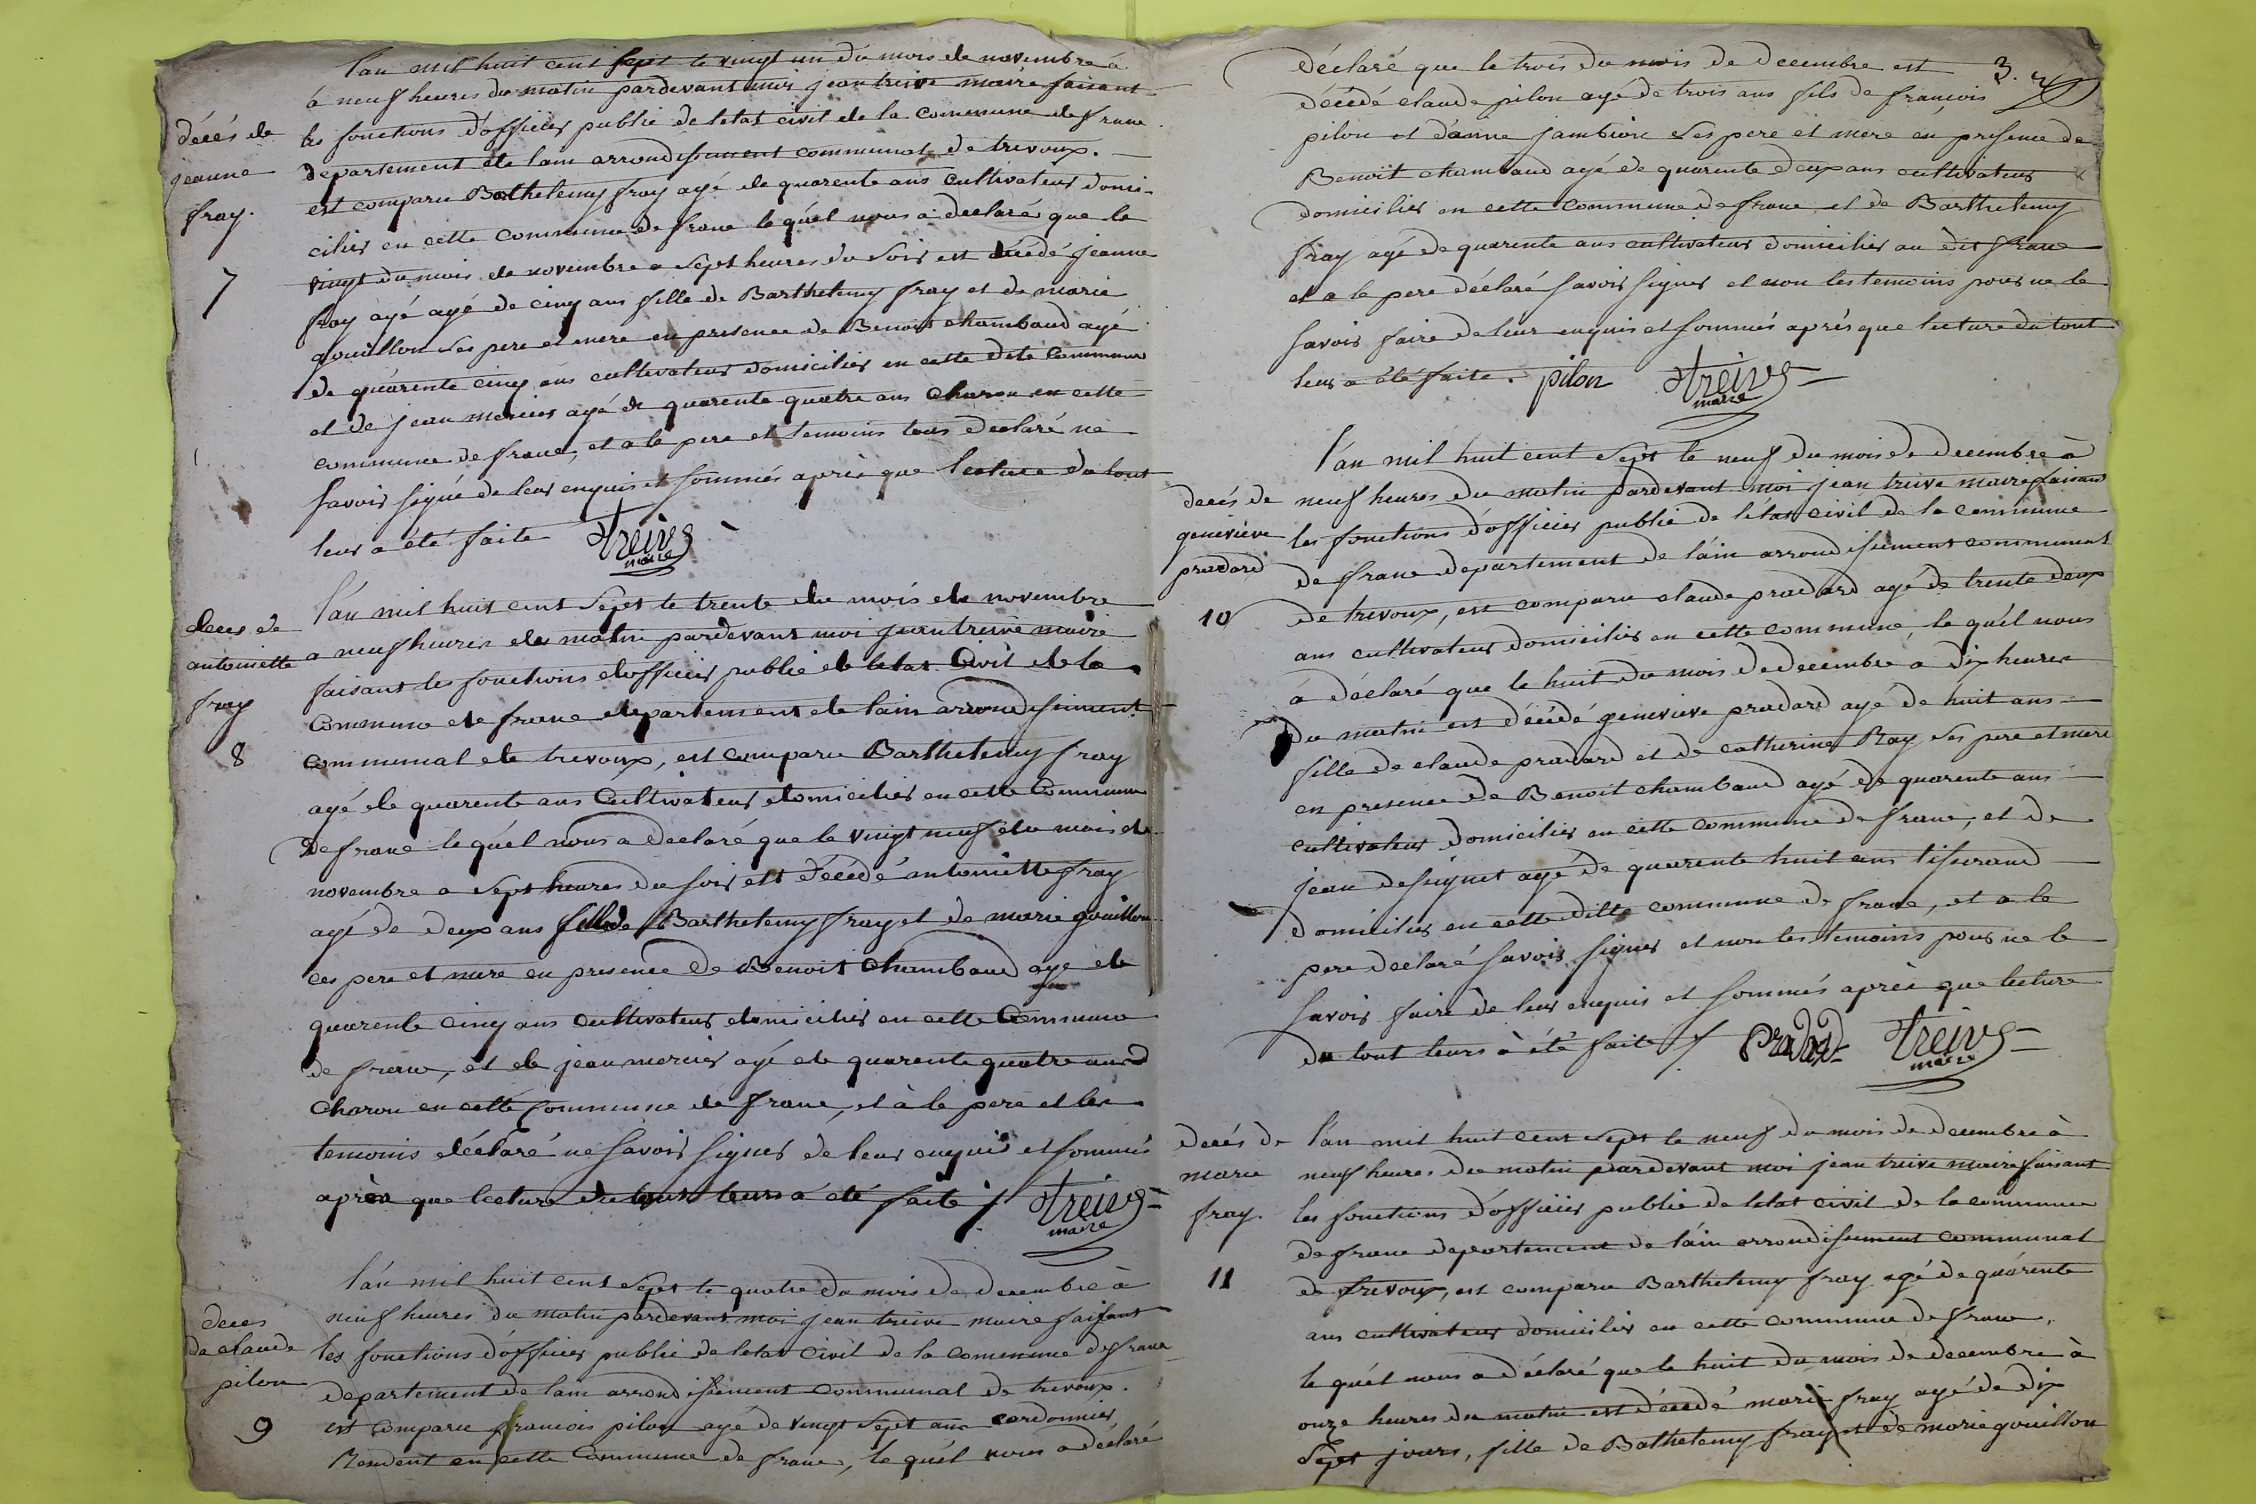 l'an mil huit cent sept le vingt un du mois de novembre à
à neuf heures du matin pardevant moi jean treive maire faisant
décés de
jeanne
fray.
7
les fonctions d'officier public de letat civil de la commune de frans
departement de lain arrondissement communal de trevoux.
est comparu Bathelemy fray agé de quarente ans cultivateur domi-
cilier en cette commune de frans le quél nous à declaré que le
vingt du mois de novembre a sept heures du soir est décédé jeanne
fray agé agé de cinq ans fille de Barthelemy fray et de marie
gouillon ses pere et mere en presence de Benoit chambaud agé
de quarente cinq ans cultivateur domicilier en cette dite commune
et de jean mercier agé de quarente quatre ans charon en cette
commune de frans, et a le pere et temoins tous declaré ne
savoir signé de leur enquis et sommés après que lecture du tout
leur a été faite treive
maire
deces de
antoinette
fray
8
l'an mil huit cent sept le trente du mois de novembre
a neuf heures du matin pardevant moi jean treive maire
faisant les fonctions dofficier public de letat civil de la
commune de frans departement de lain arrondissement
communal de trevoux, est comparu Barthelemy fray
agé de quarente ans cultivateur domicilier en cette commune
de frans le quél nous a declaré que le vingt neuf du mois de
novembre a sept heures du soir est décédé antoinette fray
agé de deux ans fille de Barthelemy fray et de marie gouillon
ces pere et mere en presence de Benoit chambaud agé de
quarente cinq ans cultivateur domicilier en cette commune
de frans, et de jean mercier agé de quarente quatre ans
charon en cette commune de frans, et à le pere et les
temoins déclaré ne savoir signer de leur enquis et sommés
après que lecture du tout leurs á été faite treive
maire
deces
de claude
pilon
9
l'an mil huit cent sept le quatre du mois de decembre à
neuf heures du matin pardevant moi jean treive maire faisant
les fonctions d'officier public de letat civil de la commune de frans
departement de lain arrondissement communal de trevoux.
est comparu francois pilon agé de vingt sept ans cordonnier,
Résident en cette commune de frans, le quél nous a déclaré
3.
déclaré que le trois du mois de decembre est
décédé claude pilon agé de trois ans fils de francois
pilon et d'anne jambion ses pere et mere en presence de
Benoit chambaud agé de quarente deux ans cultivateur
domicilier en cette commune de frans et de Barthelemy
fray agé de quarente ans cultivateur domicilier au dit frans
et a le pere déclaré savoir signer et non les temoins pour ne le
savoir faire de leur enquis et sommés après que lecture du tout
leur a été faite. pilon treive
maire
decés de
genevieve
pradard
10
l'an mil huit cent sept le neuf du mois de decembre à
neuf heures du matin pardevant moi jean treive maire faisant
les fonctions d'officier public de létat civil de la commune
de frans departement de láin arrondissement communal
de trevoux, est comparu claude pradard agé de trente deux
ans cultivateur domicilier en cette commune, le quél nous
á déclaré que le huit du mois de decembre a dix heures
du matin est décédé genevieve pradard agé de huit ans
fille de claude pradard et de catherine Ray ses pere et mere
en presence de Benoit chambaud agé de quarente ans
cultivateur domicilier en cette commune de frans, et de
jean designet agé de quarente huit ans tisserand
domicilier en cette ditte commune de frans, et a le
pere declaré savoir signer et non les temoins pour ne le
savoir faire de leur enquis et sommés après que lecture
du tout leurs à été faite Pradard treive
maire
decés de
marie
fray.
11
l'an mil huit cent sept le neuf du mois de decembre à
neuf heures du matin pardevant moi jean treive maire faisant
les fonctions d'officier public de letat civil de la commune
de frans departement de láin arrondissement communal
de trevoux, est comparu Barthelemy fray agé de quárente
ans cultivateur domicilier en cette commune de frans,
le quél nous a déclaré que le huit du mois de decembre à
onze heures du matin est décedé marie fray agé de dix
sept jours, fille de Bathelemy fray et de marie gouillon